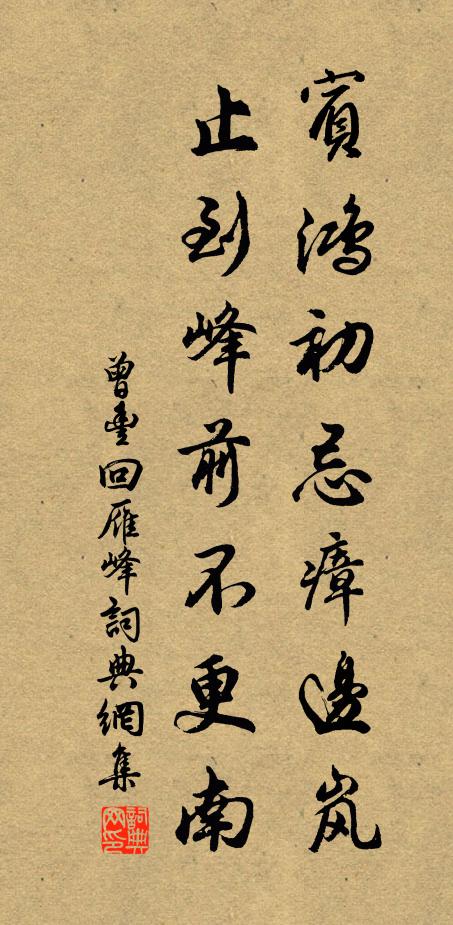 賓鴻初忌瘴邊岚
止到峰前不更南
曾豐回雁峰詞典網集
詞典网印